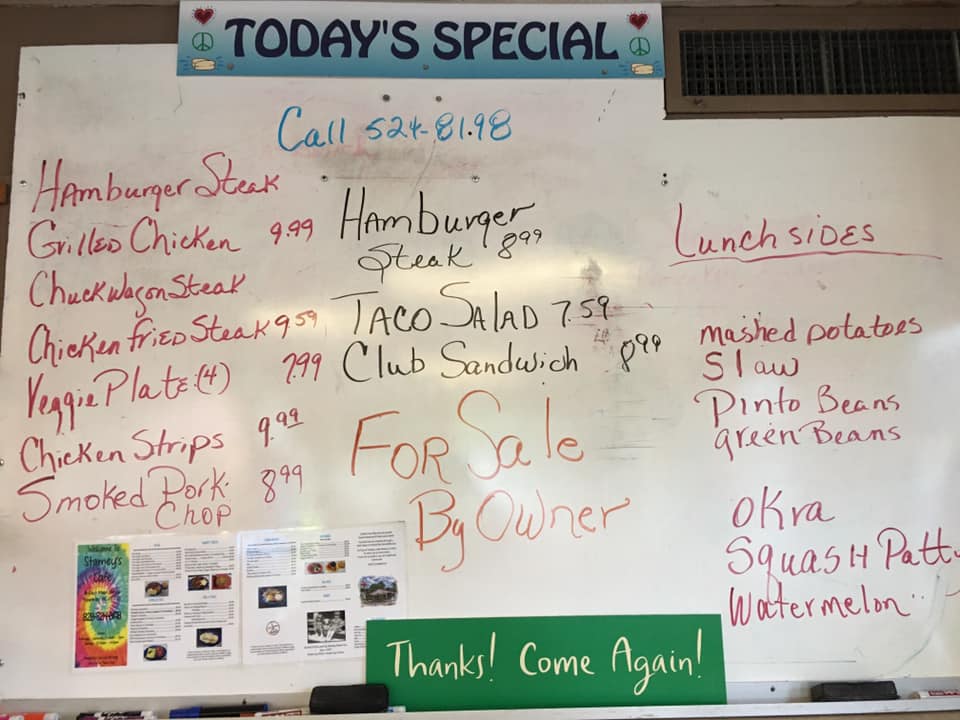 TODAY'S SPECIAL
Call 524-8198
Hamburger Steak
Grilled Chicken 9.99
Chuckwagon Steak
Chicken fried Steak 9.59
Veggie Plate (4) 7.99
Chicken Strips 9.99
Smoked Pork
Chop 8.99
Hamburger
Steak 8.99
Taco Salad 7.59
Club Sandwich 8.99
For Sale
By Owner
Lunch sides
mashed potatoes
Slaw
Pinto Beans
green Beans
Okra
Squash Patty
Watermelon
Welcome To
Stamey's
Cafe
Thanks! Come Again!